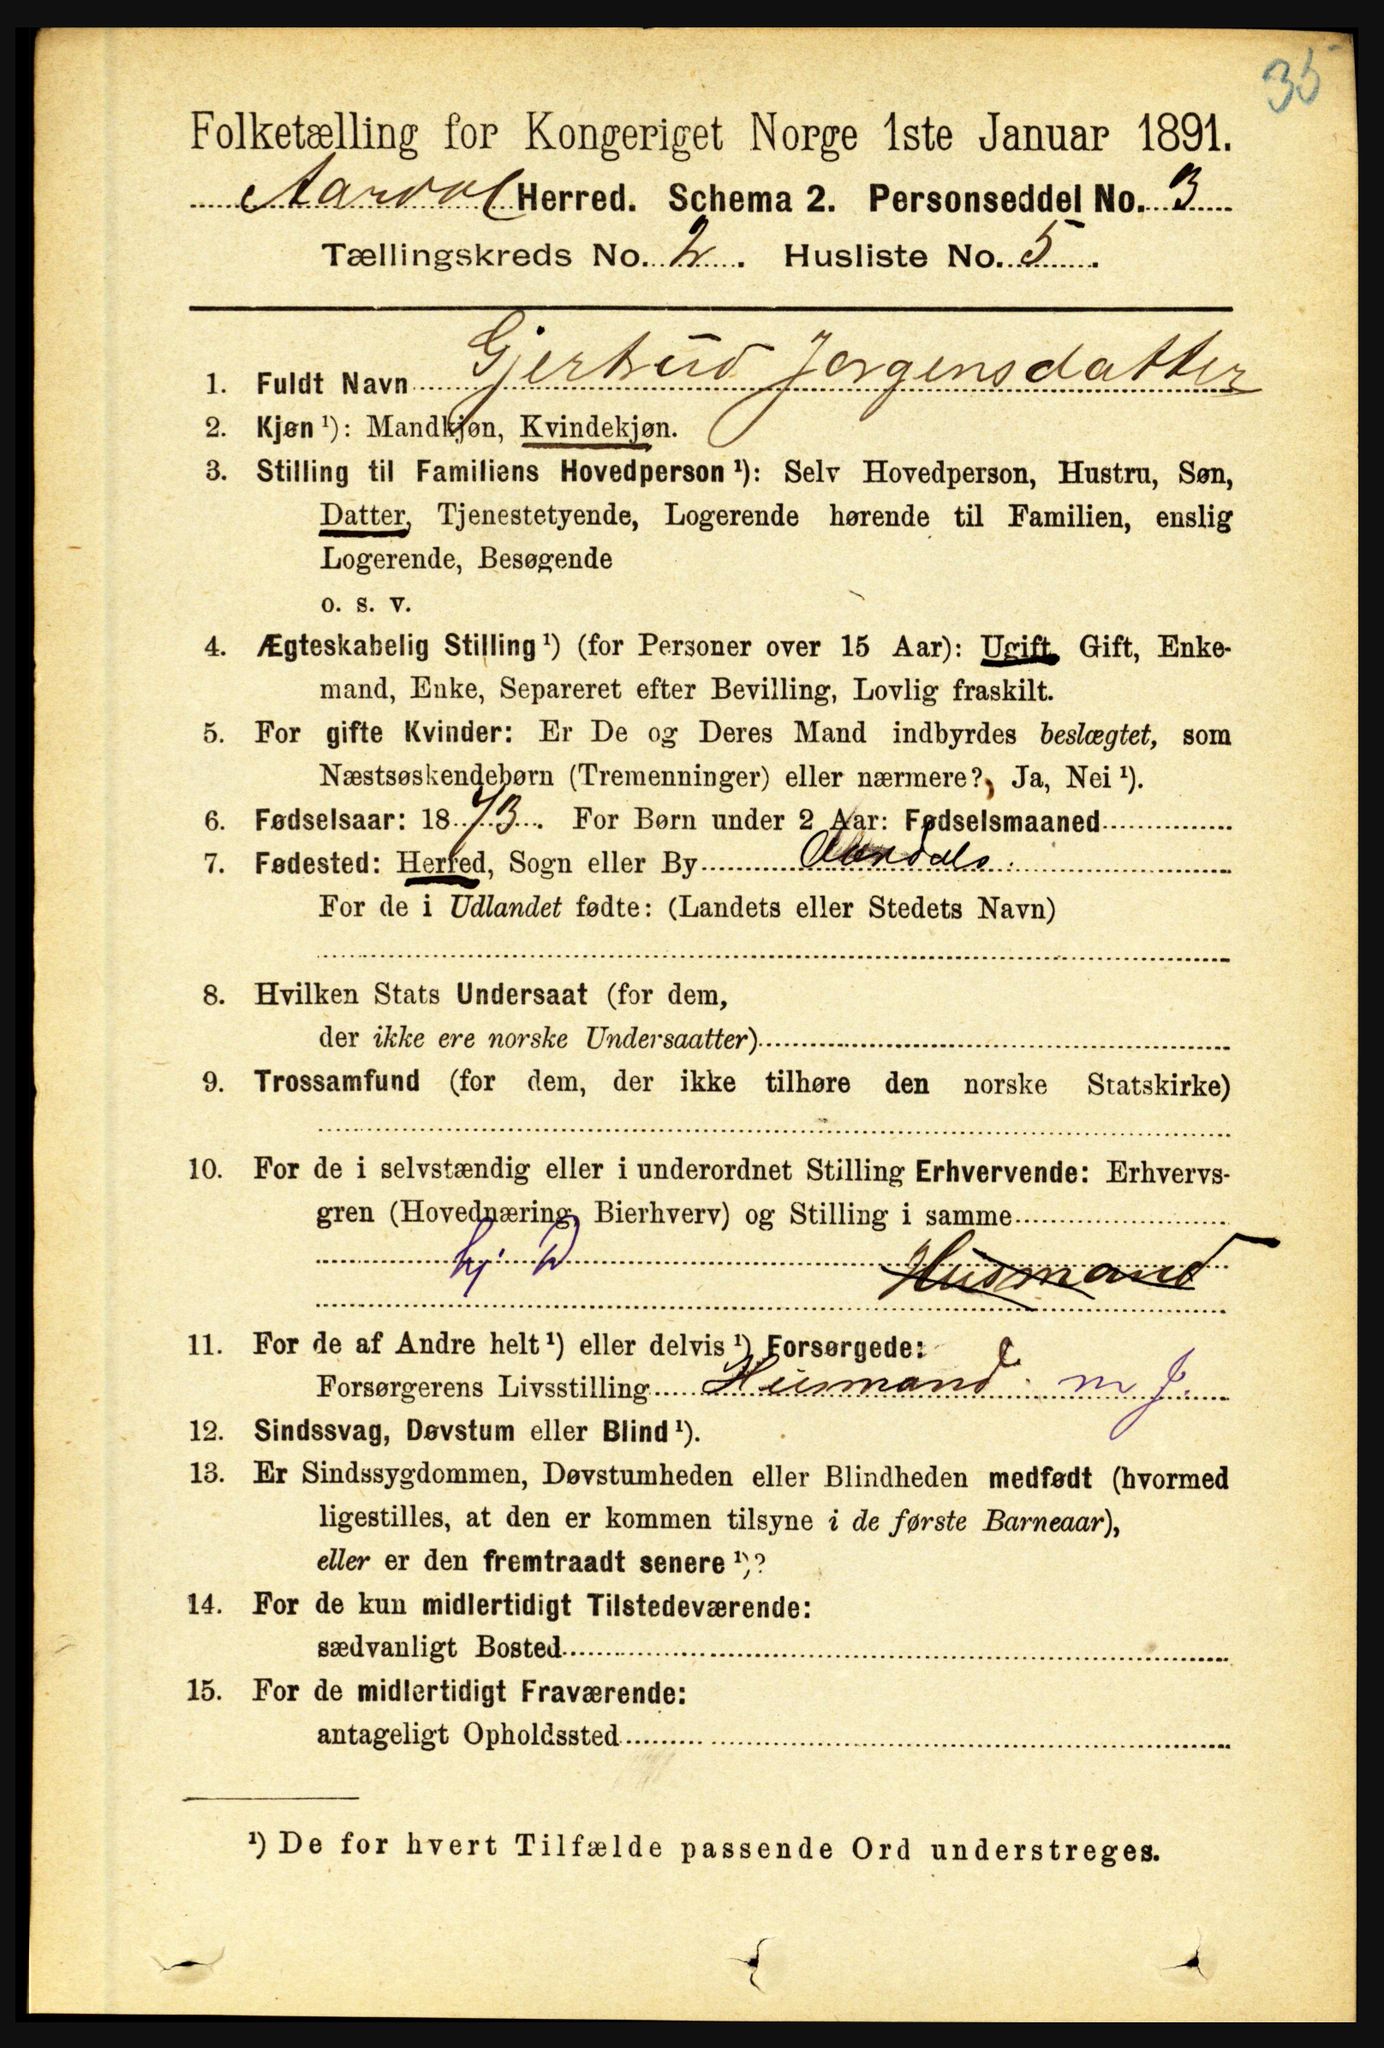 35
Folketælling for Kongeriget Norge 1ste Januar 1891.
Aardal Herred. Schema 2. Personseddel No. 3
Tællingskreds No. 2. Husliste No. 5.
1. Fuldt Navn Gjertrud Jørgensdatter
2. Kjøn ¹): Mandkjøn, Kvindekjøn.
3. Stilling til Familiens Hovedperson ¹): Selv Hovedperson, Hustru, Søn,
Datter, Tjenestetyende, Logerende hørende til Familien, enslig
Logerende, Besøgende
o. s. v.
4. Ægteskabelig Stilling ¹) (for Personer over 15 Aar): Ugift, Gift, Enke-
mand, Enke, Separeret efter Bevilling, Lovlig fraskilt.
5. For gifte Kvinder: Er De og Deres Mand indbyrdes beslægtet, som
Næstsøskendebørn (Tremenninger) eller nærmere? Ja, Nei ¹).
6. Fødselsaar: 1873. For Børn under 2 Aar: Fødselsmaaned
7. Fødested: Herred, Sogn eller By Aardals
For de i Udlandet fødte: (Landets eller Stedets Navn)
8. Hvilken Stats Undersaat (for dem,
der ikke ere norske Undersaatter)
9. Trossamfund (for dem, der ikke tilhøre den norske Statskirke)
10. For de i selvstændig eller i underordnet Stilling Erhvervende: Erhvervs-
gren (Hovednæring, Bierhverv) og Stilling i samme
hj. D Husmand
11. For de af Andre helt ¹) eller delvis ¹) Forsørgede:
Forsørgerens Livsstilling Husmand m J.
12. Sindssvag, Døvstum eller Blind ¹).
13. Er Sindssygdommen, Døvstumheden eller Blindheden medfødt (hvormed
ligestilles, at den er kommen tilsyne i de første Barneaar),
eller er den fremtraadt senere ¹)?
14. For de kun midlertidigt Tilstedeværende:
sædvanligt Bosted
15. For de midlertidigt Fraværende:
antageligt Opholdssted
¹) De for hvert Tilfælde passende Ord understreges.